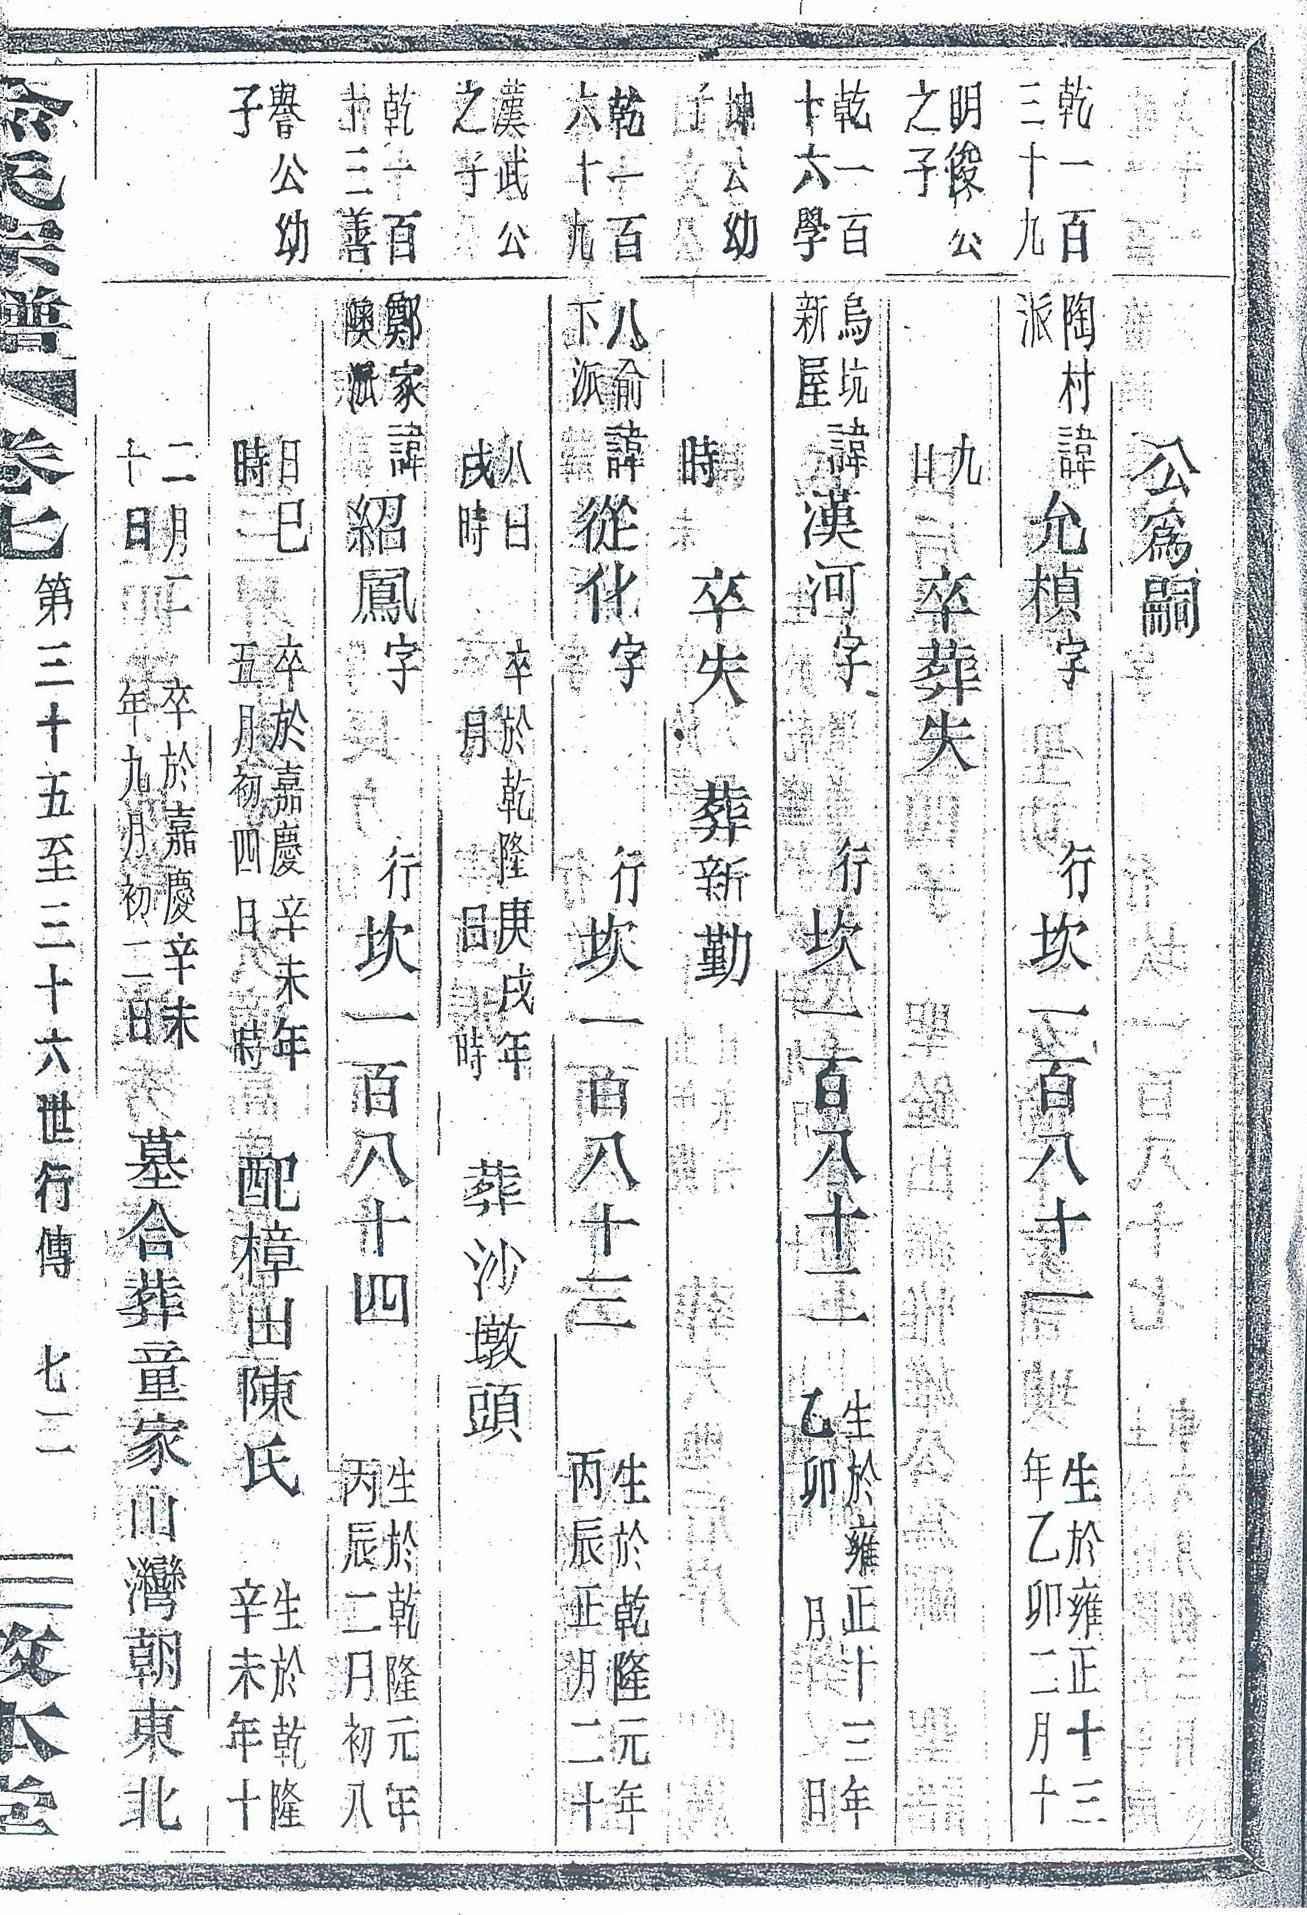 公爲嗣
乾一百三十九
陶村派
諱允楨字 行坎一百八十一 生於雍正十三年乙卯二月十
明俊公之子
九日 卒葬失
乾一百十六學
烏坑新屋
諱漢河字 行坎一百八十二 生於雍正十三年乙卯 月 日
坤公幼子
時 卒失 葬新勤
乾一百六十九
八俞下派
諱從化字 行坎一百八十三 生於乾隆元年丙辰正月二十
漢武公之子
八日戌時 卒於乾隆庚戌年 月 日 時 葬沙墩頭
乾一百十三善
鄭家隩派
諱紹鳳字 行坎一百八十四 生於乾隆元年丙辰二月初八
譽公幼子
日巳時 卒於嘉慶辛未年五月初四日 時 配樟田陳氏 生於乾隆辛未年十
二月二十日 卒於嘉慶辛未年九月初二日 墓合葬童家山灣朝東北
俞氏宗譜 卷七 第三十五至三十六世行傳 七二 敦本堂